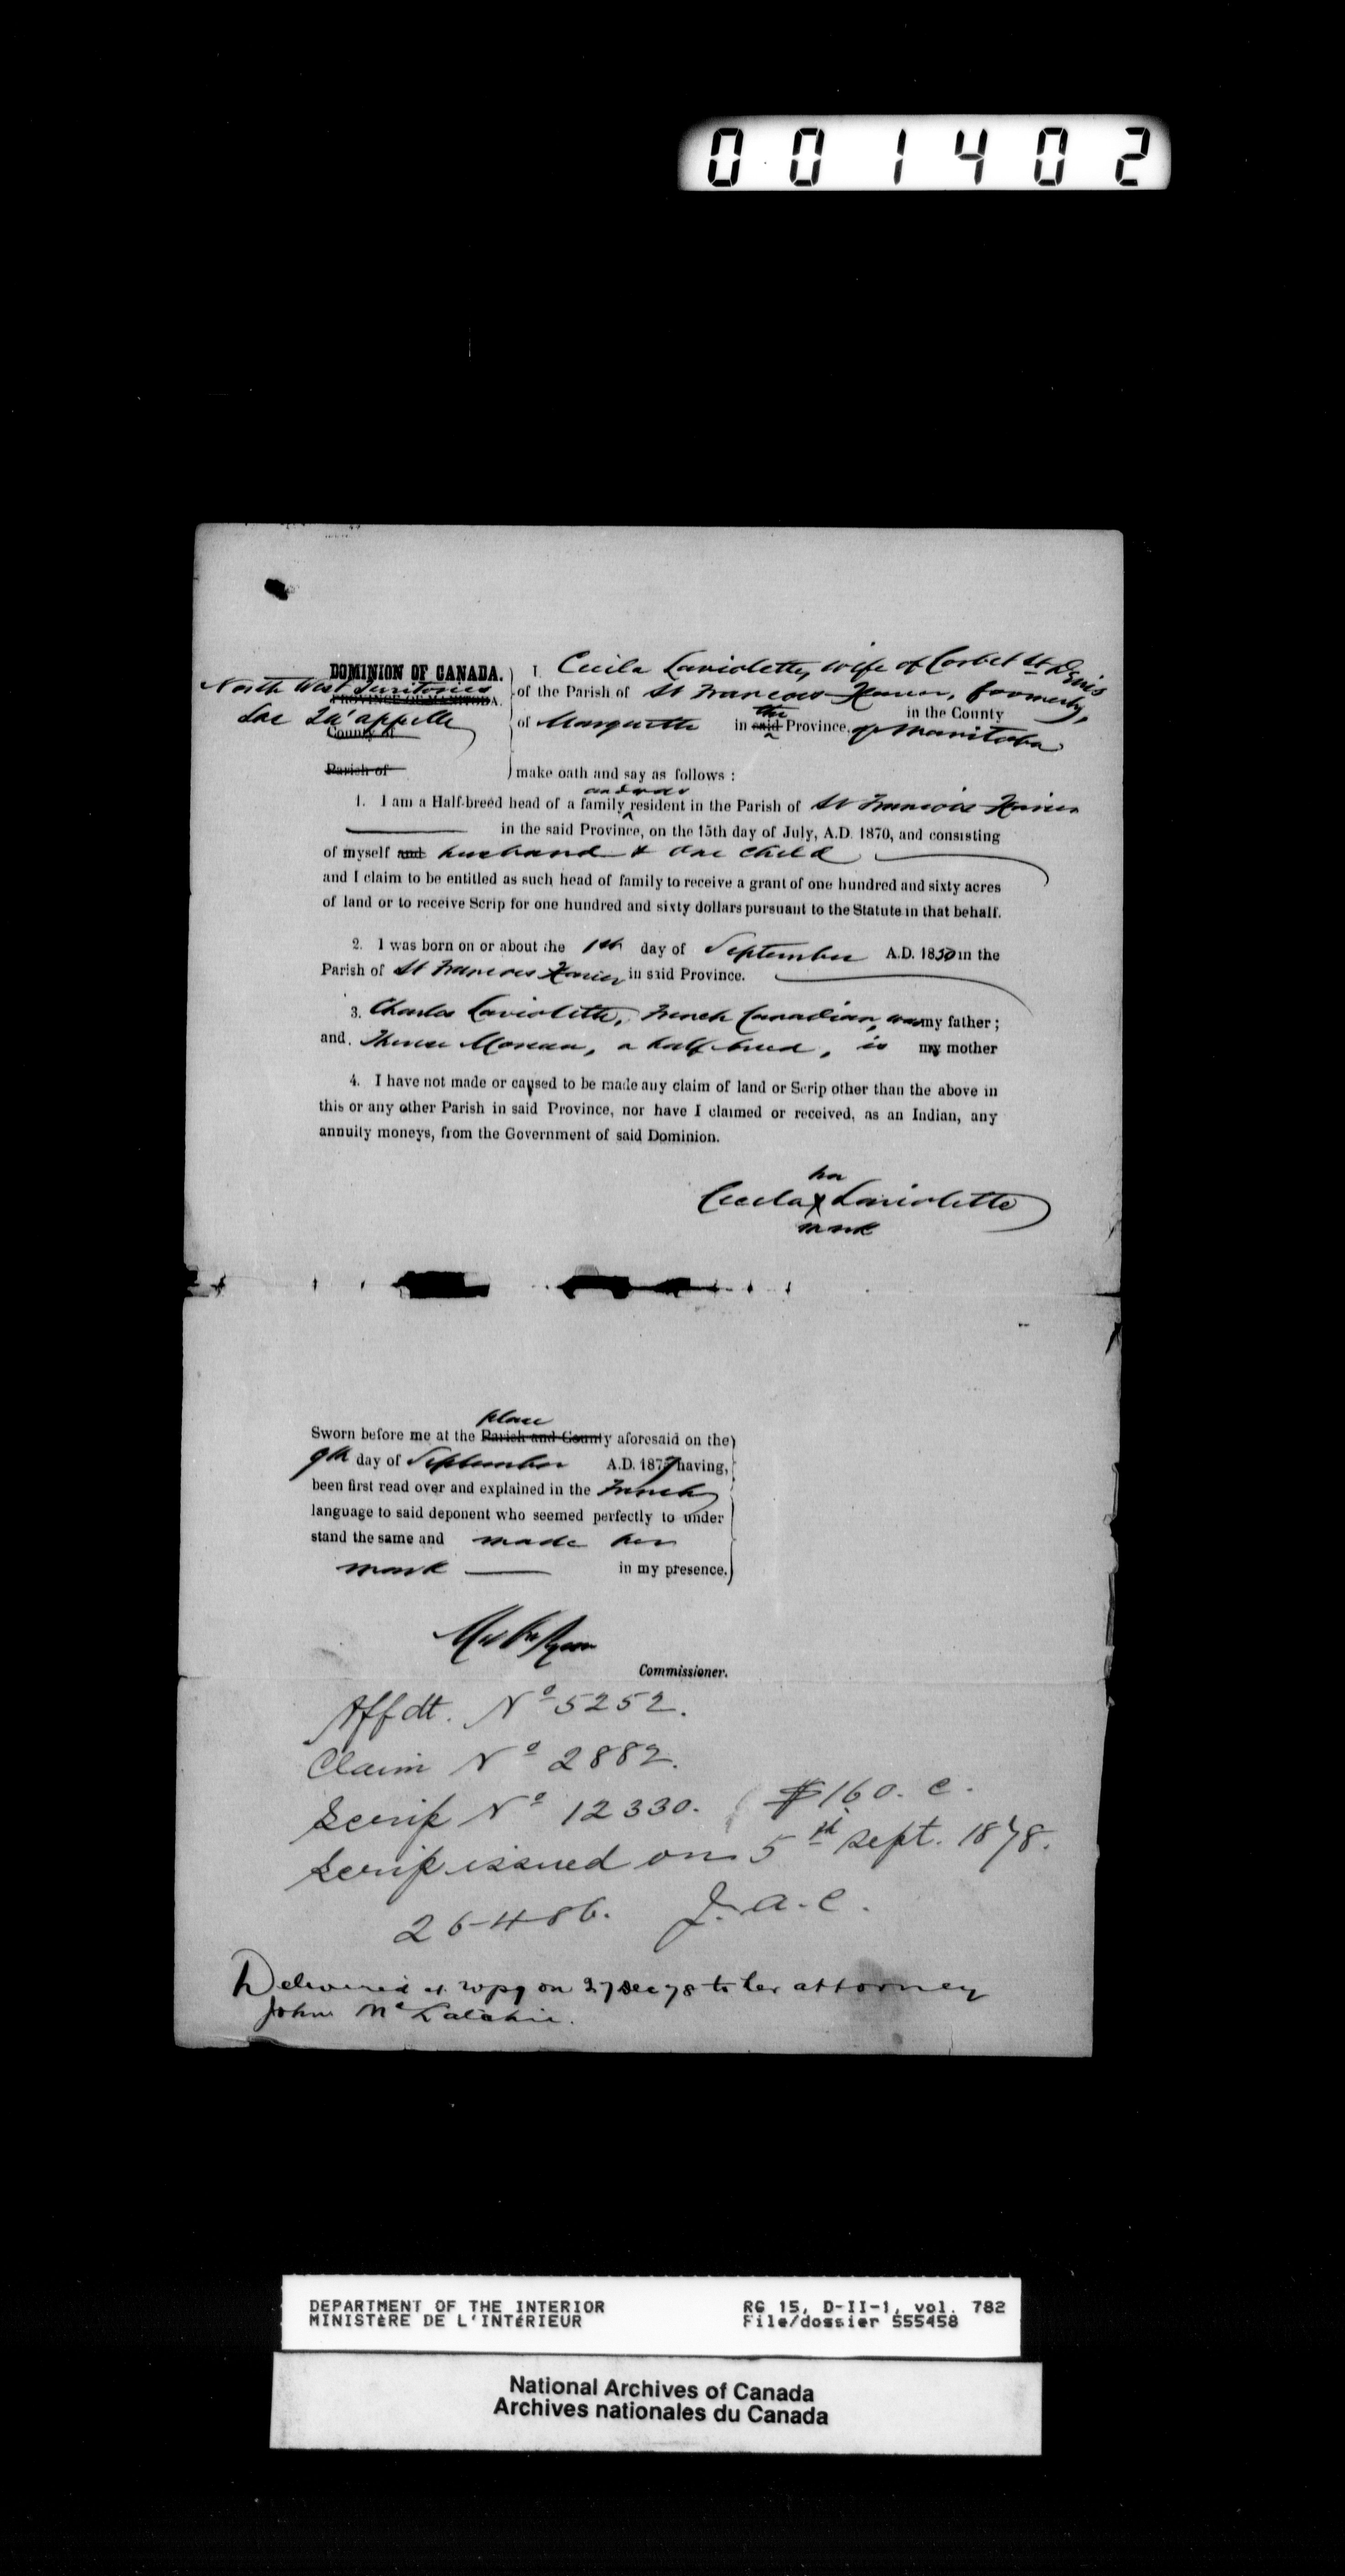 001402
DOMINION OF CANADA.
North West Territories
PROVINCE OF MANITOBA.
Lac Qu'appelle
County of
Parish of
I, Cecila Laviolette, wife of Corbet St Denis
of the Parish of St Francois Xavier, formerly,
in the County
of Marquette in the said Province, of Manitoba
make oath and say as follows :
1. I am a Half-breed head of a family and was resident in the Parish of St Francois Xavier
in the said Province, on the 15th day of July, A.D. 1870, and consisting
of myself and husband & one child
and I claim to be entitled as such head of family to receive a grant of one hundred and sixty acres
of land or to receive Scrip for one hundred and sixty dollars pursuant to the Statute in that behalf.
2. I was born on or about the 1st day of September A.D. 1850 in the
Parish of St Francois Xavier in said Province.
3. Charles Laviolette, French Canadian, was my father ;
and Therese Moreau, a half breed, is my mother
4. I have not made or caused to be made any claim of land or Scrip other than the above in
this or any other Parish in said Province, nor have I claimed or received, as an Indian, any
annuity moneys, from the Government of said Dominion.
her
Cecila X Laviolette
mark
place
Sworn before me at the Parish and County aforesaid on the
9th day of September A.D. 1877 having,
been first read over and explained in the French
language to said deponent who seemed perfectly to under
stand the same and made her
mark in my presence.
Commissioner.
Affdt. No 5252.
Claim No 2882.
Scrip No 12330. $160. c.
Scrip issued on 5th Sept. 1878.
26-4-86. J.A.C.
Delivered at Wpg on 27 Dec 78 to her attorney
John McLatchie.
DEPARTMENT OF THE INTERIOR RG 15, D-II-1, vol. 782
MINISTÈRE DE L'INTÉRIEUR File/dossier 555458
National Archives of Canada
Archives nationales du Canada